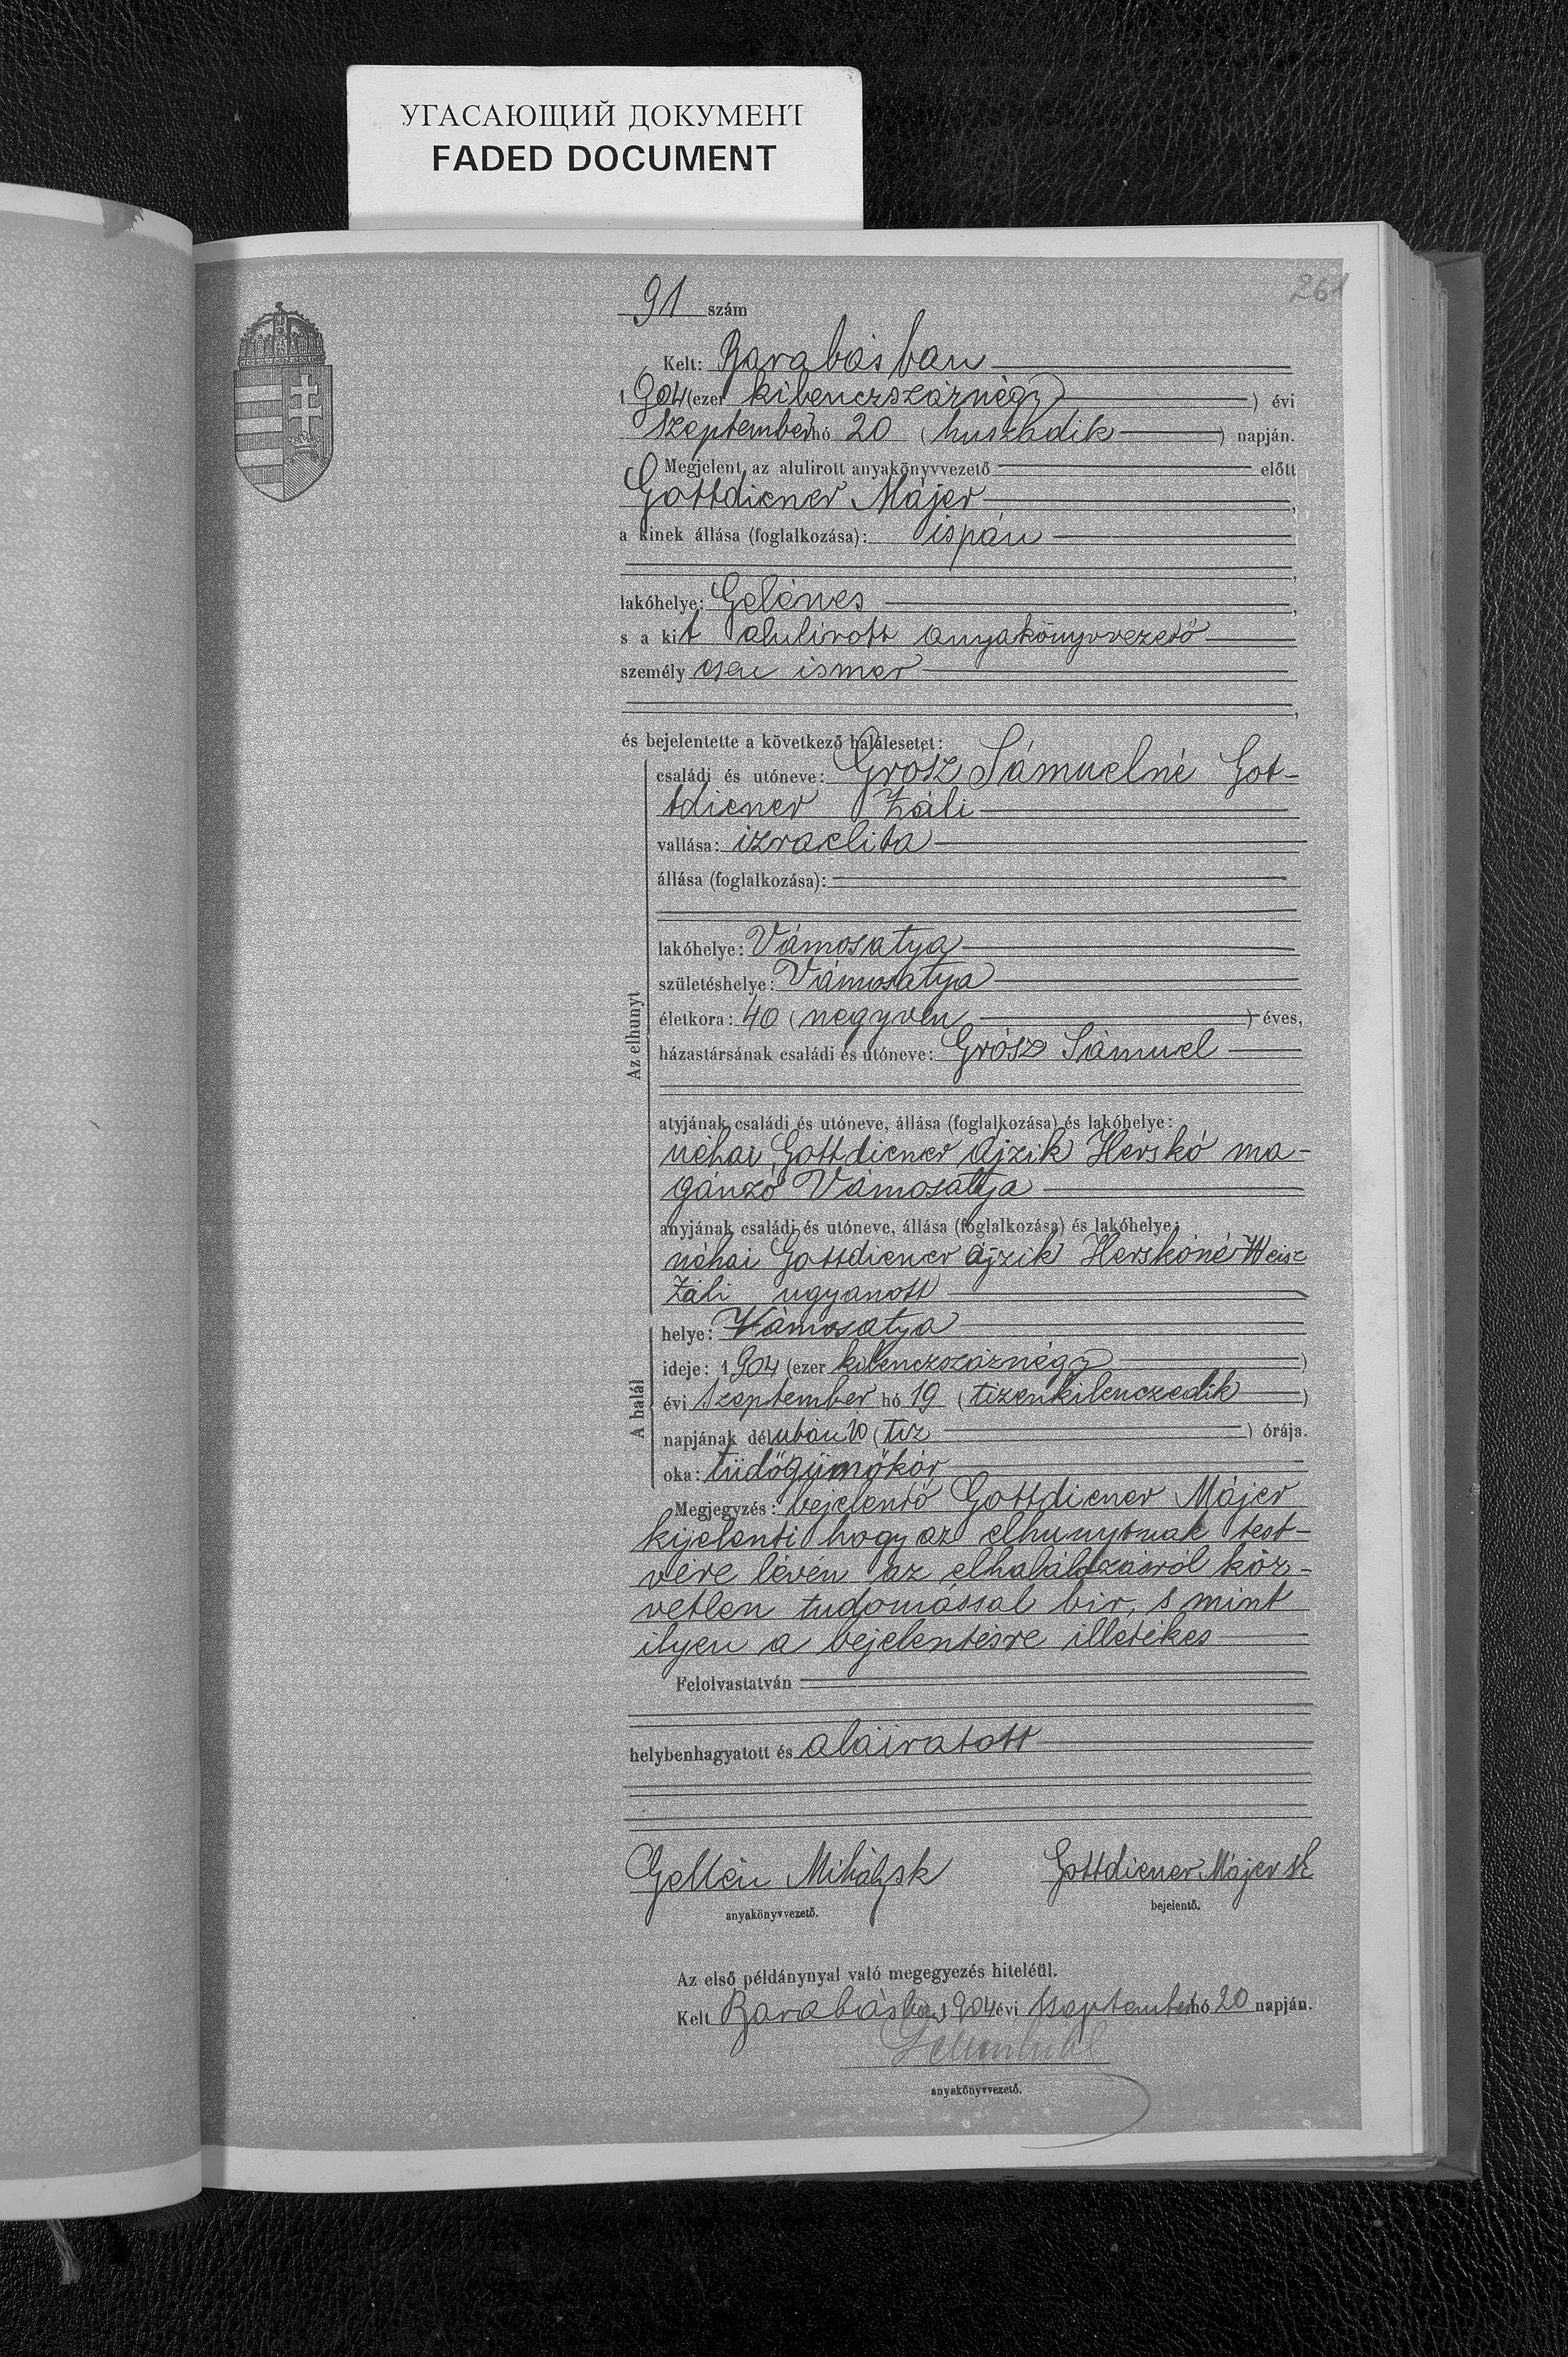 УГАСАЮЩИЙ ДОКУМЕНТ
FADED DOCUMENT
261
91 szám
Kelt: Barabásban
1904 (ezer kilenczszáznégy) évi
szeptember hó 20 (huszadik) napján.
Megjelent az alulirott anyakönyvvezető előtt
Gottdiener Májer,
a kinek állása (foglalkozása): ispán
lakóhelye: Gelénes,
s a kit alulirott anyakönyvvezető
személyesen ismer,
és bejelentette a következő halálesetet:
Az elhunyt
családi és utóneve: Grósz Sámuelné Got-
tdiener Záli
vallása: izraelita
állása (foglalkozása):
lakóhelye: Vámosatya
születéshelye: Vámosatya
életkora: 40 (negyven) éves,
házastársának családi és utóneve: Grósz Sámuel
atyjának családi és utóneve, állása (foglalkozása) és lakóhelye:
néhai Gottdiener Ájzik Herskó ma-
gánzó Vámosatya
anyjának családi és utóneve, állása (foglalkozása) és lakóhelye:
néhai Gottdiener Ájzik Herskóné Weisz
Záli ugyanott
A halál
helye: Vámosatya
ideje: 1904 (ezer kilenczszáznégy)
évi szeptember hó 19 (tizenkilenczedik)
napjának délutáni 10 (tiz) órája.
oka: tüdőgümőkór
Megjegyzés: bejelentő Gottdiener Májer
kijelenti hogy az elhunytnak test-
vére lévén az elhalálozásról köz-
vetlen tudomással bir, s mint
ilyen a bejelentésre illetékes
Felolvastatván
helybenhagyatott és aláiratott
Gellén Mihály sk Gottdiener Májer sk
anyakönyvvezető. bejelentő.
Az első példánynyal való megegyezés hiteléül.
Kelt Barabásban 1904 évi szeptember hó 20 napján.
anyakönyvvezető.